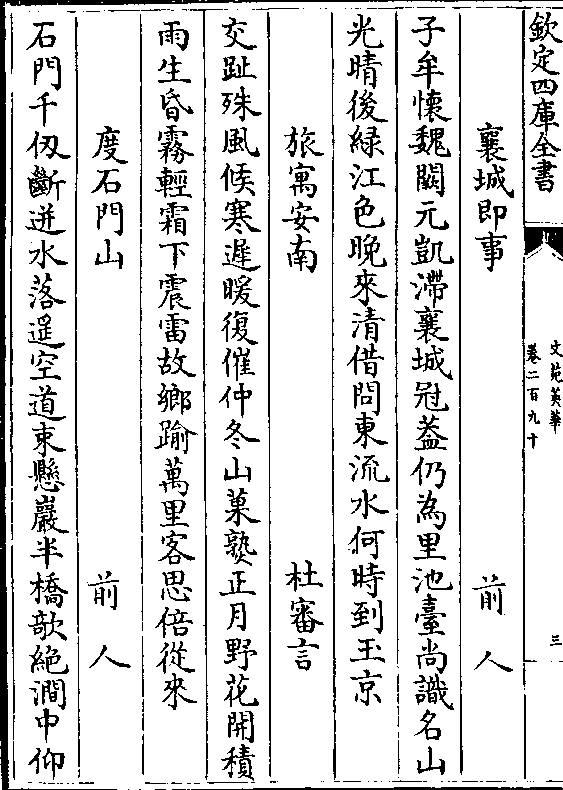 欽定四庫全書
文苑英華
卷二百九十
三
襄城即事 前人
子牟懷魏闕元凱滯襄城冠葢仍為里池臺尚識名山
光晴後緑江色晚來清借問東流水何時到玉京
旅寓安南 杜審言
交趾殊風候寒遲暖復催仲冬山菓熟正月野花開積
雨生昏霧輕霜下震雷故鄉踰萬里客思倍從來
度石門山 前人
石門千仭斷迸水落遥空道束懸巖半橋欹絶澗中仰